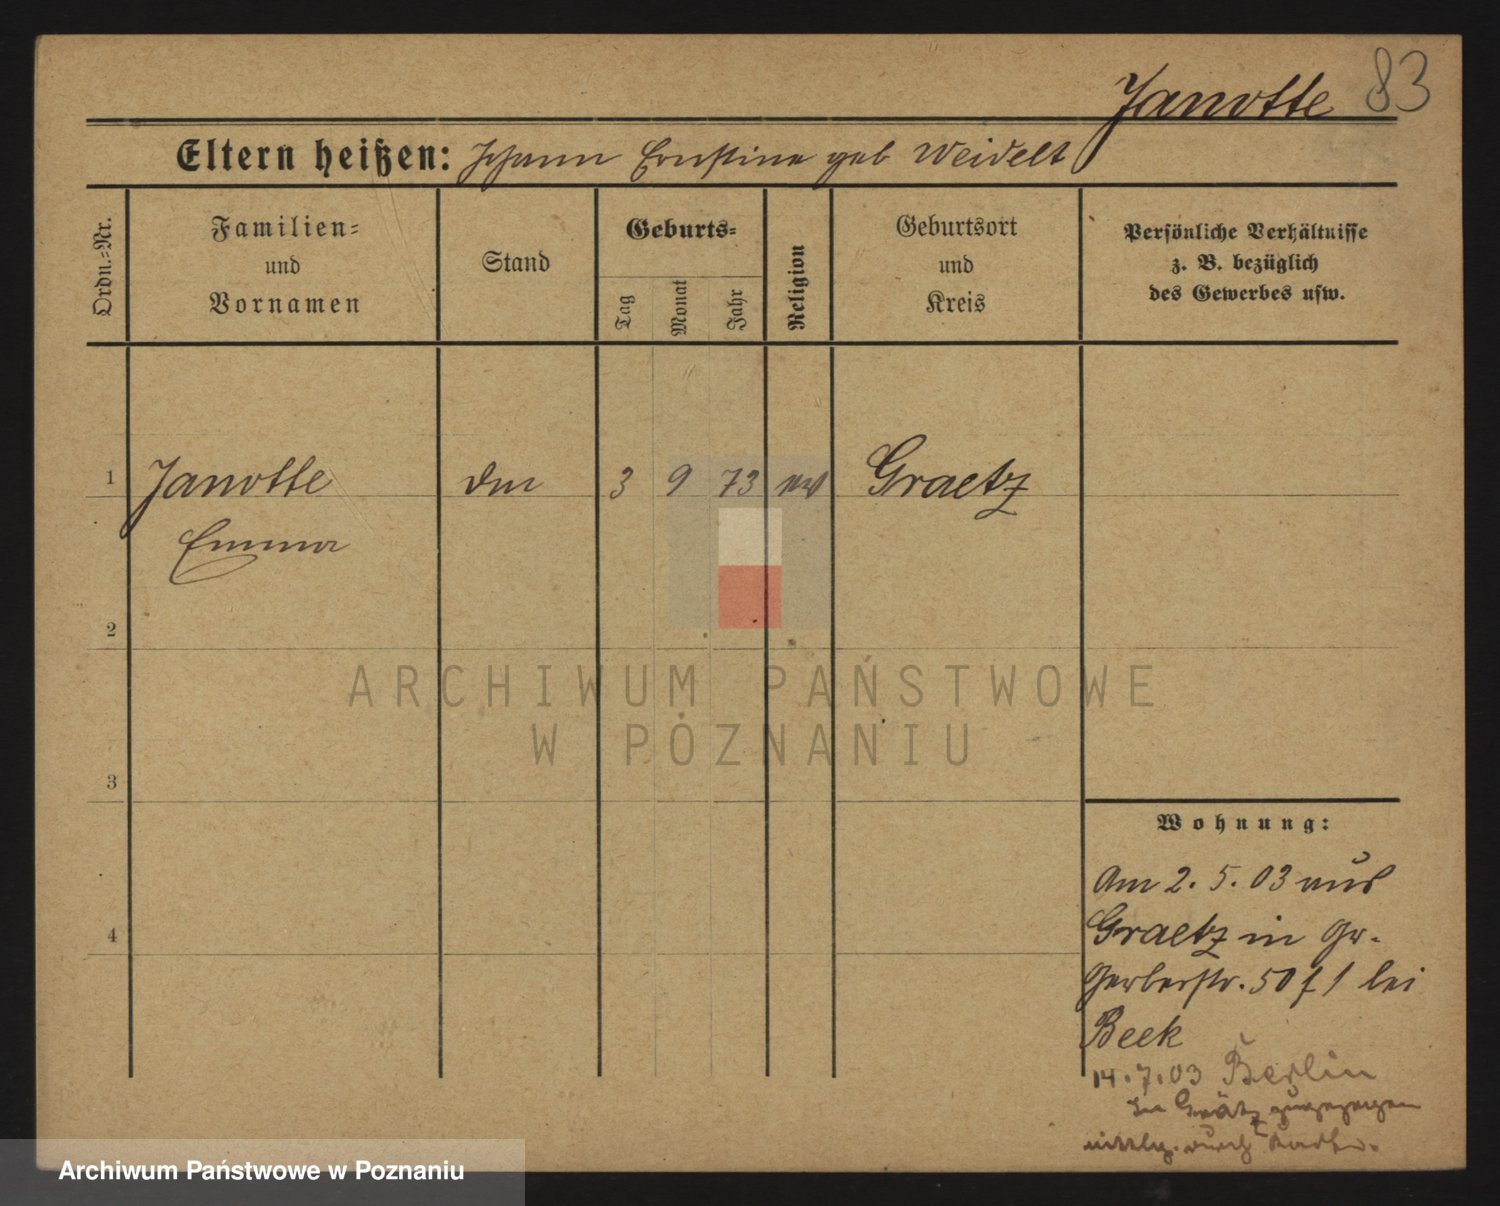 Janotte 83
Eltern heißen: Johann Ernstine geb Weidelt
Ordn.-Nr.
Familien-
und
Vornamen
Stand
Geburts-
Tag
Monat
Jahr
Religion
Geburtsort
und
Kreis
Persönliche Verhältnisse
z. B. bezüglich
des Gewerbes usw.
1 Janotte 3 9 73 ev Graetz
Emma
2
ARCHIWUM PAŃSTWOWE
W POZNANIU
3
Wohnung:
Am 2. 5. 03 aus
4
Graetz in Gr.
Gerberstr. 50 f 1 bei
Beek
14.7.03 Berlin
in Grätz zugezogen
durch
Archiwum Państwowe w Poznaniu